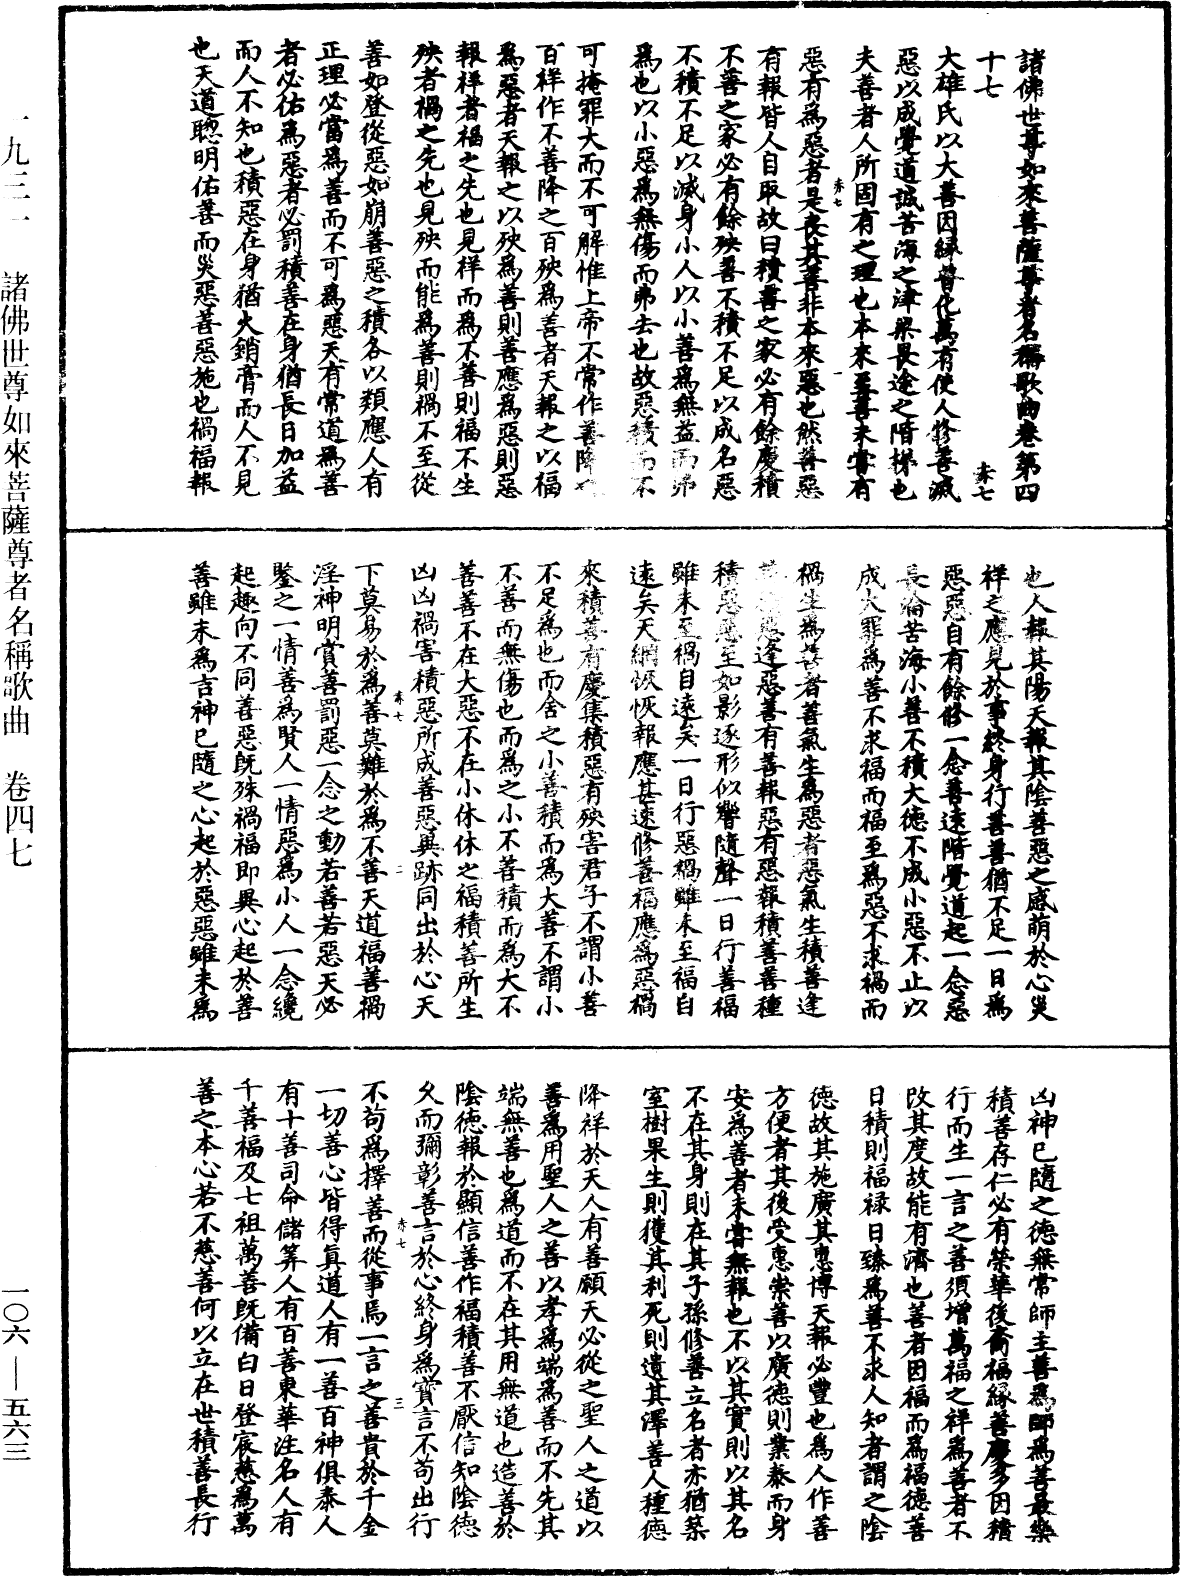 諸佛世尊如來菩薩尊者名稱歌曲卷第四
十七　　　　　　　　　　　　　　　赤七
大雄氏以大善因緣普化萬有使人修善滅
惡以成覺道誠苦海之津梁長途之階梯也
夫善者人所固有之理也本來至善未嘗有
惡有為惡者是喪其善非本來惡也然善惡
有報皆人自取故曰積善之家必有餘慶積
不善之家必有餘殃善不積不足以成名惡
不積不足以滅身小人以小善為無益而弗
為也以小惡為無傷而弗去也故惡積而不
可掩罪大而不可解惟上帝不常作善降之
百祥作不善降之百殃為善者天報之以福
為惡者天報之以殃為善則善應為惡則惡
報祥者福之先也見祥而為不善則福不生
殃者禍之先也見殃而能為善則禍不至從
善如登從惡如崩善惡之積各以類應人有
正理必當為善而不可為惡天有常道為善
者必佑為惡者必罰積善在身猶長日加益
而人不知也積惡在身猶火銷膏而人不見
也天道聰明佑善而災惡善惡施也禍福報
也人報其陽天報其陰善惡之感萌於心災
祥之應見於事終身行善善猶不足一日為
惡惡自有餘修一念善遠階覺道起一念惡
長淪苦海小善不積大德不成小惡不止以
成大罪為善不求福而福至為惡不求禍而
禍生為善者善氣生為惡者惡氣生積善逢
善積惡逢惡善有善報惡有惡報積善善種
積惡惡至如影逐形似響隨聲一日行善福
雖未至禍自遠矣一日行惡禍雖未至福自
遠矣天網恢恢報應甚速修善福應為惡禍
來積善有慶集積惡有殃害君子不謂小善
不足為也而舍之小善積而為大善不謂小
不善而無傷也而為之小不善積而為大不
善善不在大惡不在小休休之福積善所生
凶凶禍害積惡所成善惡異跡同出於心天
下莫易於為善莫難於為不善天道福善禍
淫神明賞善罰惡一念之動若善若惡天必
鑒之一情善為賢人一情惡為小人一念纔
起趣向不同善惡既殊禍福即異心起於善
善雖未為吉神已隨之心起於惡惡雖未為
凶神已隨之德無常師主善為師為善最樂
積善存仁必有榮華後裔福緣善慶多因積
行而生一言之善須增萬福之祥為善者不
改其度故能有濟也善者因福而為福德善
日積則福祿日臻為善不求人知者謂之陰
德故其施廣其惠博天報必豐也為人作善
方便者其後受惠崇善以廣德則業泰而身
安為善者未嘗無報也不以其實則以其名
不在其身則在其子孫修善立名者亦猶築
室樹果生則獲其利死則遺其澤善人種德
降祥於天人有善願天必從之聖人之道以
善為用聖人之善以孝為端為善而不先其
端無善也為道而不在其用無道也造善於
陰德報於顯信善作福積善不厭信知陰德
久而彌彰善言於心終身為寶言不苟出行
不苟為擇善而從事焉一言之善貴於千金
一切善心皆得真道人有一善百神俱泰人
有十善司命儲筭人有百善東華注名人有
千善福及七祖萬善既備白日登宸慈為萬
善之本心若不慈善何以立在世積善長行
赤七　一
赤七　二
赤七　三
一九三一　諸佛世尊如來菩薩尊者名稱歌曲　卷四七　一〇六—五六三